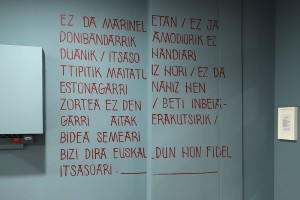 EZ DA MARINEL ETAN / EZ JA
DONIBANDARRIK AMODIORIK EZ
DUANIK / ITSASO HANDIARI
TTIPITIK MAITATU IZ HORI / EZ DA
ESTUNAGARRI NAHIZ HEN
ZORTEA EZ DEN / BETI INBEIA-
GARRI AITAK ERAKUTSIRIK /
BIDEA SEMEARI
BIZI DIRA EUSKAL DUN HON FIDEL
ITSASOARI.